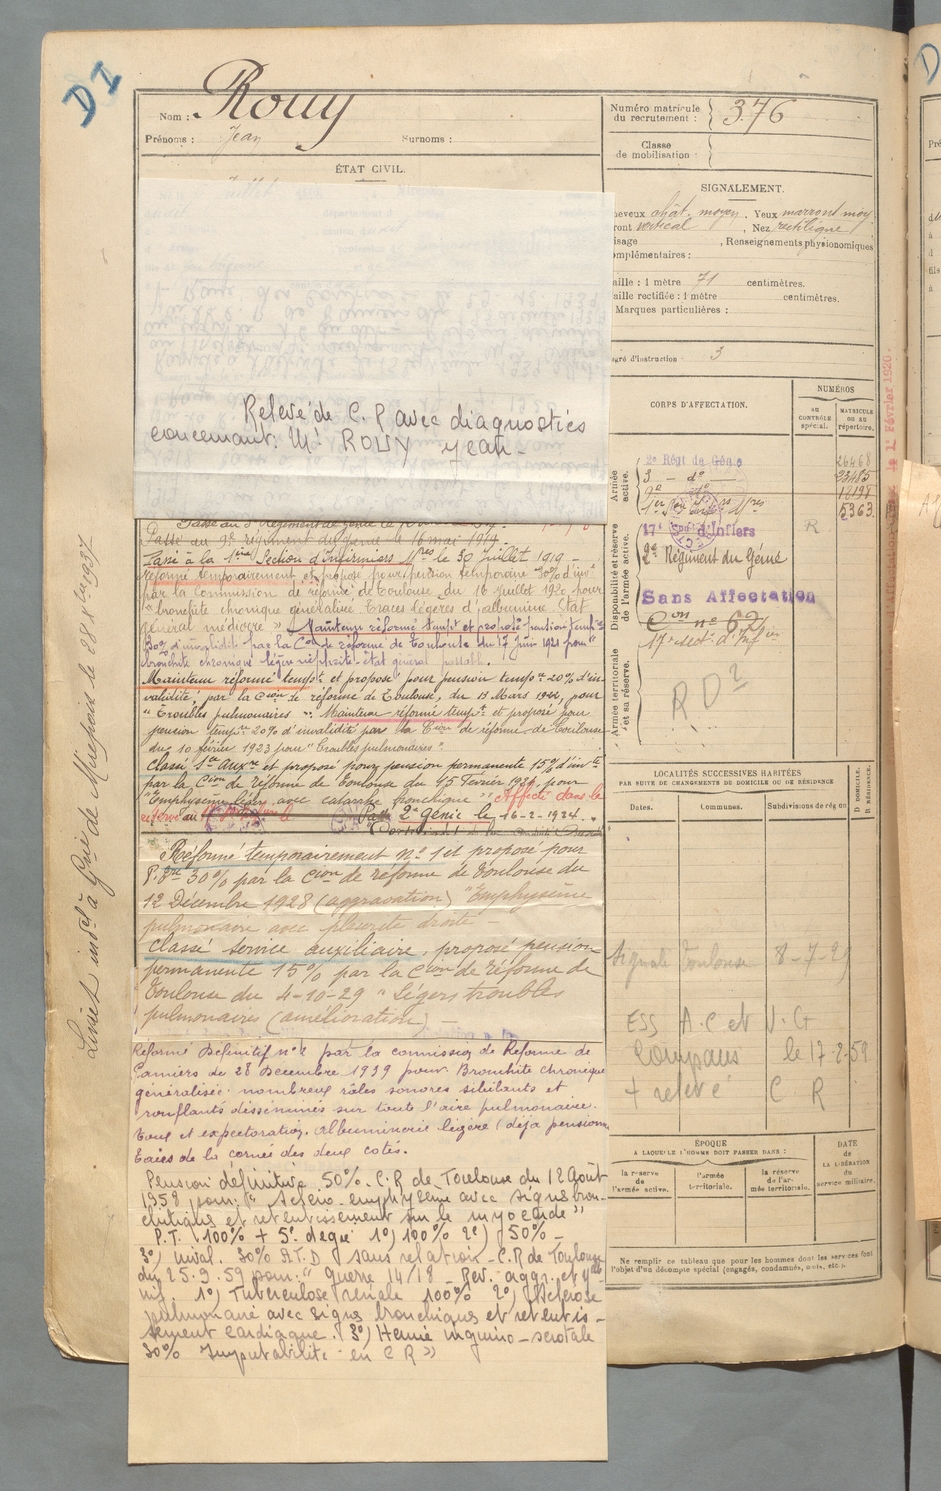 DI
Nom : Rouy
Prénoms : Jean Surnoms :
ÉTAT CIVIL.
Relevé de C. R avec diagnostics
concernant: Mr ROUY Jean -
Passé au 9e régiment du génie le 16 mai 1919.
Passé à la 17ème Section d'Infirmiers Mres le 30 juillet 1919 -
Réformé temporairement et proposé pour pension temporaire 30% d'invté
par la Commission de réforme de Toulouse du 16 Juillet 1920 pour
"bronchite chronique généralisée Traces légères d'albumine Etat
général médiocre" Maintenu réformé tempt et proposé pension tempre
30% d'invalidité par la Con de réforme de Toulouse du 17 Juin 1921 pour "
bronchite chronique légère néphrite - état général passable.
Maintenu réformé tempt et proposé pour pension tempre 20% d'in-
validité, par la Cion de réforme de Toulouse, du 13 Mars 1922, pour
"Troubles pulmonaires". Maintenu réformé tempt et proposé pour
pension tempre 20% d'invalidité par la Cion de réforme de Toulouse
du 10 février 1923 pour "Troubles pulmonaires"
Classé Sce auxre et proposé pour pension permanente 15% d'invté
par la Cion de réforme de Toulouse du 15 Février 1924, pour
"Emphysème léger avec catarrhe bronchique" Affecté dans la
réserve au Passé 2e génie le 16-2-1924.
Réformé temporairement no 1 et proposé pour
P. Tre 30% par la Cion de réforme de Toulouse du
12 Décembre 1928 (aggravation) "Emphysème
pulmonaire avec pleurite droite -
Classé service auxiliaire, proposé pension
permanente 15% par la Cion de réforme de
Toulouse du 4-10-29 "Légers troubles
pulmonaires (amélioration) -
Réformé Définitif no 2 par la commission de Réforme de
Pamiers de 28 Decembre 1939 pour Bronchite chronique
généralisée nombreux râles sonores sibilants et
ronflants disséminés sur toute l'aire pulmonaire.
Toux et expectoration. Albuminurie légère (déja pensionné
Taies de la cornée des deux cotés.
Pension définitive 50%. C.R de Toulouse du 18 Août
1958 pour: "Scléro-emphysème avec signes bron-
chitiques et retentissement sur le myocarde"
P.T. 100% + 5e degré 1o) 100% 2o) 50% -
3o) inval. 30% R.T.D sans relation - C.R de Toulouse
du 25.9.59 pour: "Guerre 14/18 - Rev. aggr. et
inf. 1o) Tuberculose rénale 100% 2o) Sclérose
pulmonaire avec signes bronchiques et retentis-
sement cardiaque. 3o) Hernie inguino-scrotale
30% Imputabilité en CR"
Livret indel à Gie de Mirepoix le 28 8bre 1937
Numéro matricule
du recrutement : 376
Classe
de mobilisation :
SIGNALEMENT.
heveux chât. moyen. Yeux marront moy
ront vertical, Nez rectiligne
isage , Renseignements physionomiques
omplémentaires :
aille : 1 mètre 71 centimètres.
aille rectifiée : 1 mètre centimètres.
Marques particulières :
egré d'instruction 3
CORPS D'AFFECTATION.
NUMÉROS
AU CONTRÔLE spécial.
MATRICULE OU AU répertoire.
Armée active.
2e Régt de Génie 26468
3 - do - 23485
9e 18198
5363
Disponibilité et réserve de l'armée active.
17e Son d'Infiers R
2e Régiment du Génie
Sans Affectation
Con no 62
17e Sect. d'Infirs
Armée territoriale et sa réserve.
RD2
LOCALITÉS SUCCESSIVES HABITÉES
PAR SUITE DE CHANGEMENTS DE DOMICILE OU DE RÉSIDENCE
Dates. Communes. Subdivisions de région
D DOMICILE. R RÉSIDENCE.
Signalé Toulouse 8-7-29
ESS A.C et V.G
le 17-2-59
+ relevé C R
ÉPOQUE
A LAQUELLE L'HOMME DOIT PASSER DANS :
la réserve de l'armée active.
l'armée territoriale.
la réserve de l'armée territoriale.
DATE de LA LIBÉRATION du service militaire.
Ne remplir ce tableau que pour les hommes dont les services font
l'objet d'un décompte spécial (engagés, condamnés, omis, etc.).